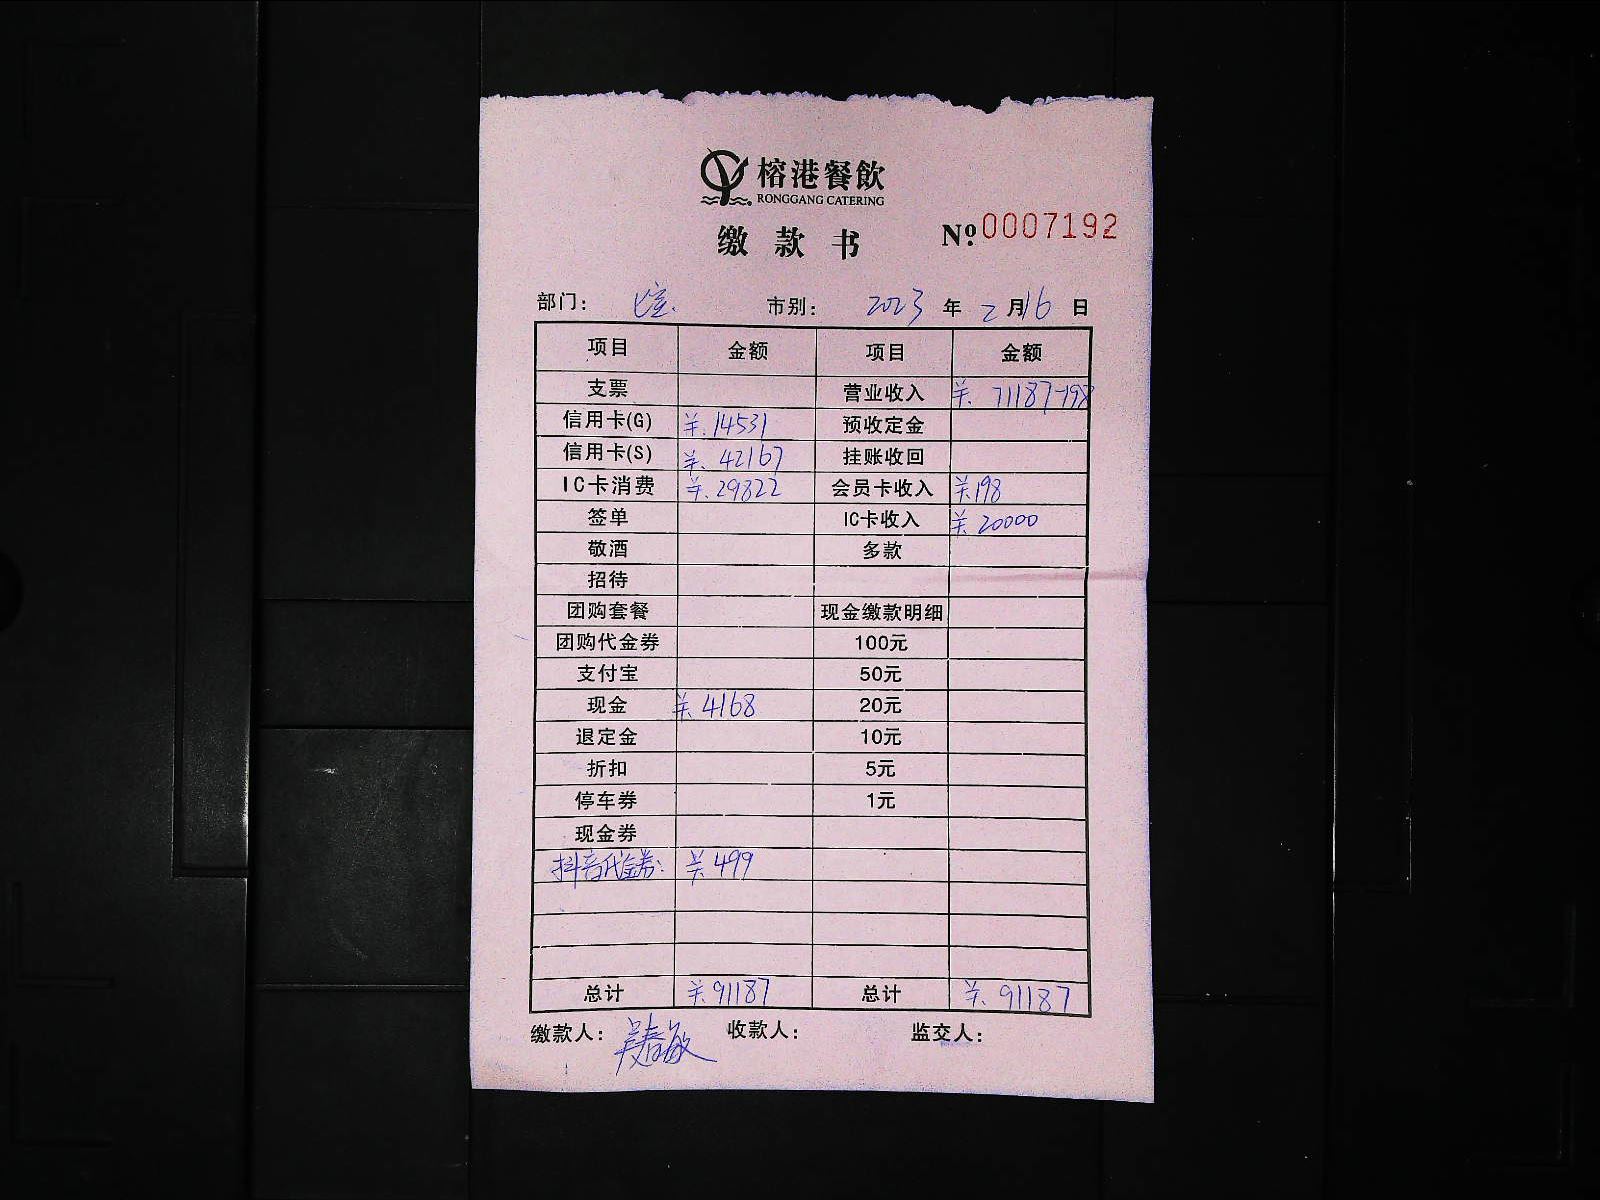 榕港餐飲
RONGGANG CATERING
缴款书 Nº 0007192
部门： 市别： 2023 年 2 月 16 日
项目 金额 项目 金额
支票 营业收入 ¥. 71187-198
信用卡(G) ¥. 14531 预收定金
信用卡(S) ¥. 42167 挂账收回
IC卡消费 ¥. 29822 会员卡收入 ¥198
签单 IC卡收入 ¥. 20000
敬酒 多款
招待
团购套餐 现金缴款明细
团购代金券 100元
支付宝 50元
现金 ¥. 4168 20元
退定金 10元
折扣 5元
停车券 1元
现金券
抖音代金券： ¥ 499
总计 ¥. 91187 总计 ¥. 91187
缴款人： 吴春敏 收款人： 监交人：